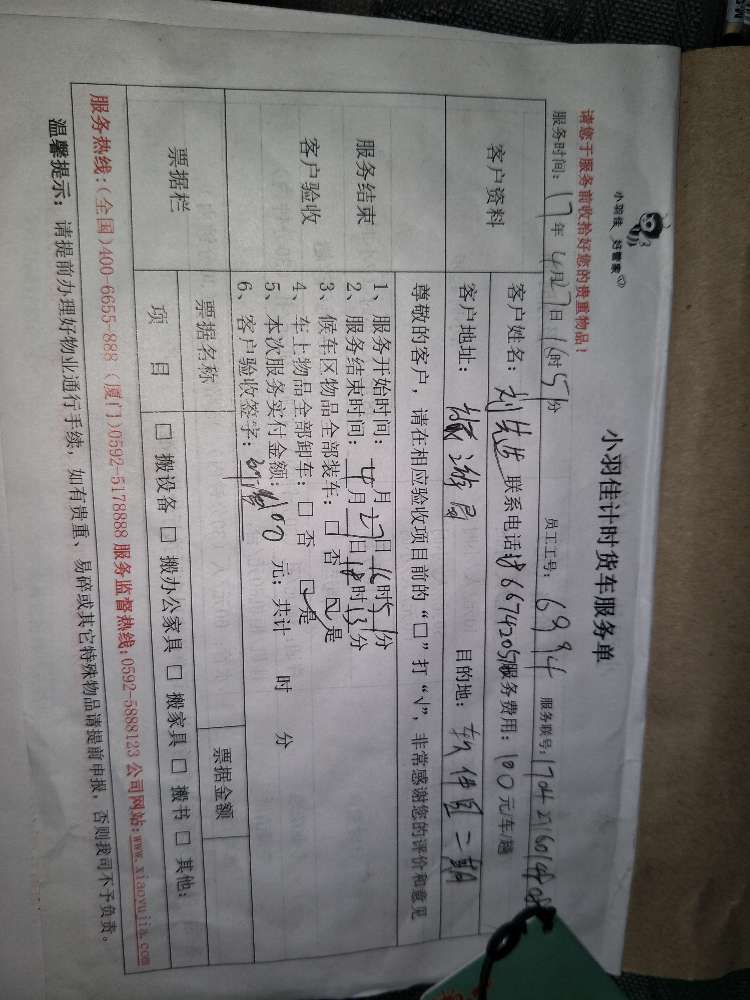 小羽佳 好管家
小羽佳计时货车服务单
请您于服务前收拾好您的贵重物品！
服务时间：17年4月27日16时51分 员工工号：6994 服务联号：
客户资料
客户姓名：刘先生 联系电话 服务费用：100元/车/趟
客户地址：旅游局 目的地：软件园二期
服务结束
客户验收
尊敬的客户，请在相应验收项目前的“□”打“√”，非常感谢您的评价和意见
1、服务开始时间：4月27日16时51分
2、服务结束时间：4月27日18时13分
3、候车区物品全部装车：□ 否 ☑ 是
4、车上物品全部卸车：□ 否 ☑ 是
5、本次服务实付金额：100元；共计 时 分
6、客户验收签字：
票据栏
票据名称 票据金额
项 目 □ 搬设备 □ 搬办公家具 □ 搬家具 □ 搬书 □ 其他：
服务热线：（全国）400-6655-888（厦门）0592-5178888 服务监督热线：0592-5888123 公司网站：www.xiaoyujia.com
温馨提示：请提前办理好物业通行手续，如有贵重、易碎或其它特殊物品请提前申报，否则我司不予负责。